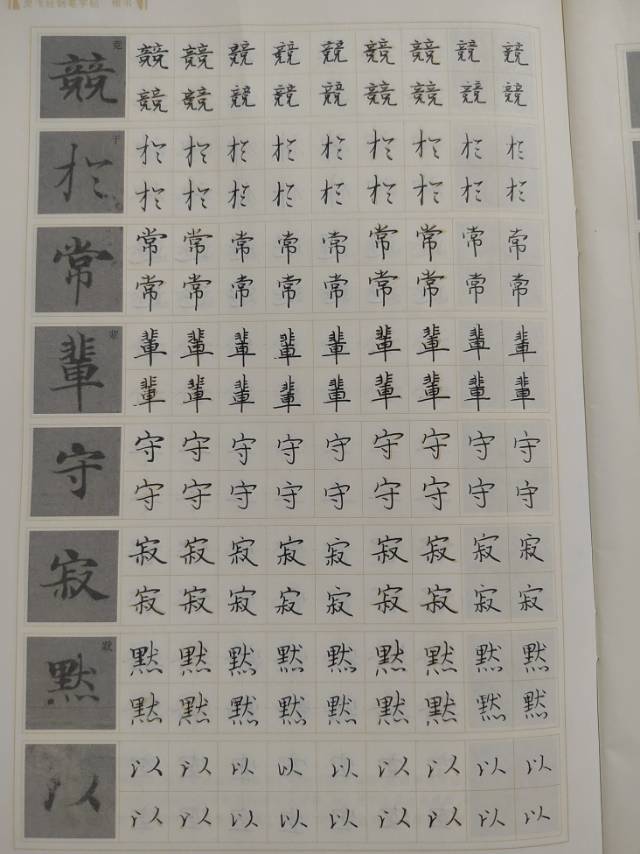 競 竞
競 競 競 競 競 競 競 競 競
競 競 競 競 競 競 競 競 競
於 于
於 於 於 於 於 於 於 於 於
於 於 於 於 於 於 於 於 於
常
常 常 常 常 常 常 常 常 常
常 常 常 常 常 常 常 常 常
輩 辈
輩 輩 輩 輩 輩 輩 輩 輩 輩
輩 輩 輩 輩 輩 輩 輩 輩 輩
守
守 守 守 守 守 守 守 守 守
守 守 守 守 守 守 守 守 守
寂
寂 寂 寂 寂 寂 寂 寂 寂 寂
寂 寂 寂 寂 寂 寂 寂 寂 寂
默 默
默 默 默 默 默 默 默 默 默
默 默 默 默 默 默 默 默 默
以
以 以 以 以 以 以 以 以 以
以 以 以 以 以 以 以 以 以